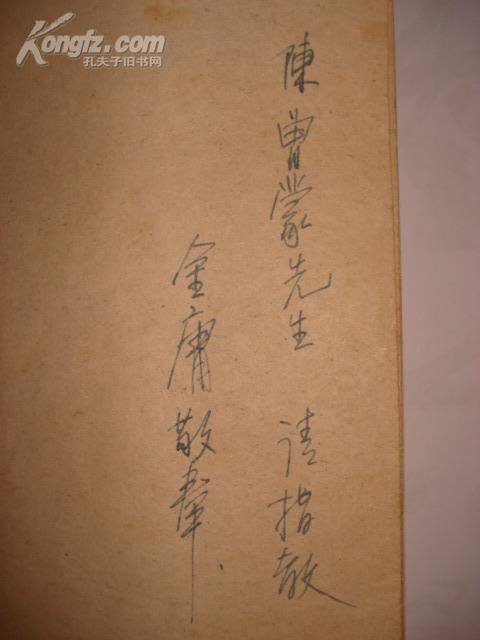 Kongfz.com
孔夫子旧书网
陳曾蒙先生 请指教
金庸敬奉